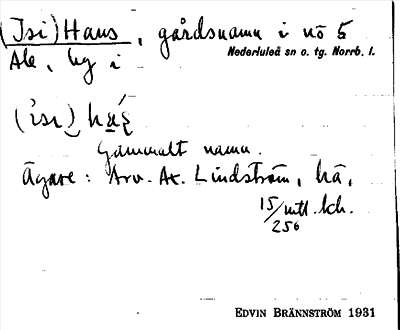 (Isi) Hans, gårdsnamn i nö 5
Ale, by i Nederluleå sn o. tg. Norrb. l.
(isi)
Gammalt namn.
Ägare: Arv. Ax. Lindström,
15/256 mtl.
EDVIN BRÄNNSTRÖM 1931